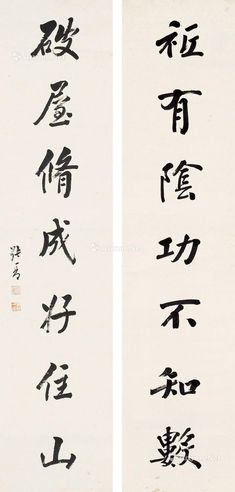 祇有陰功不知數
破屋脩成好住山
張